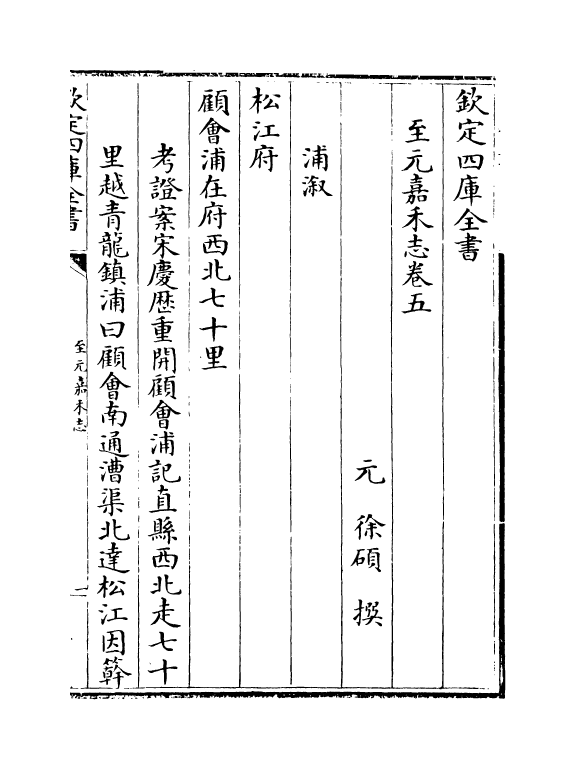 欽定四庫全書
至元嘉禾志卷五
元　徐碩　撰
浦溆
松江府
顧會浦在府西北七十里
考證案宋慶歴重開顧會浦記直縣西北走七十
里越青龍鎮浦曰顧會南通漕渠北達松江因簳
欽定四庫全書
至元嘉禾志
一